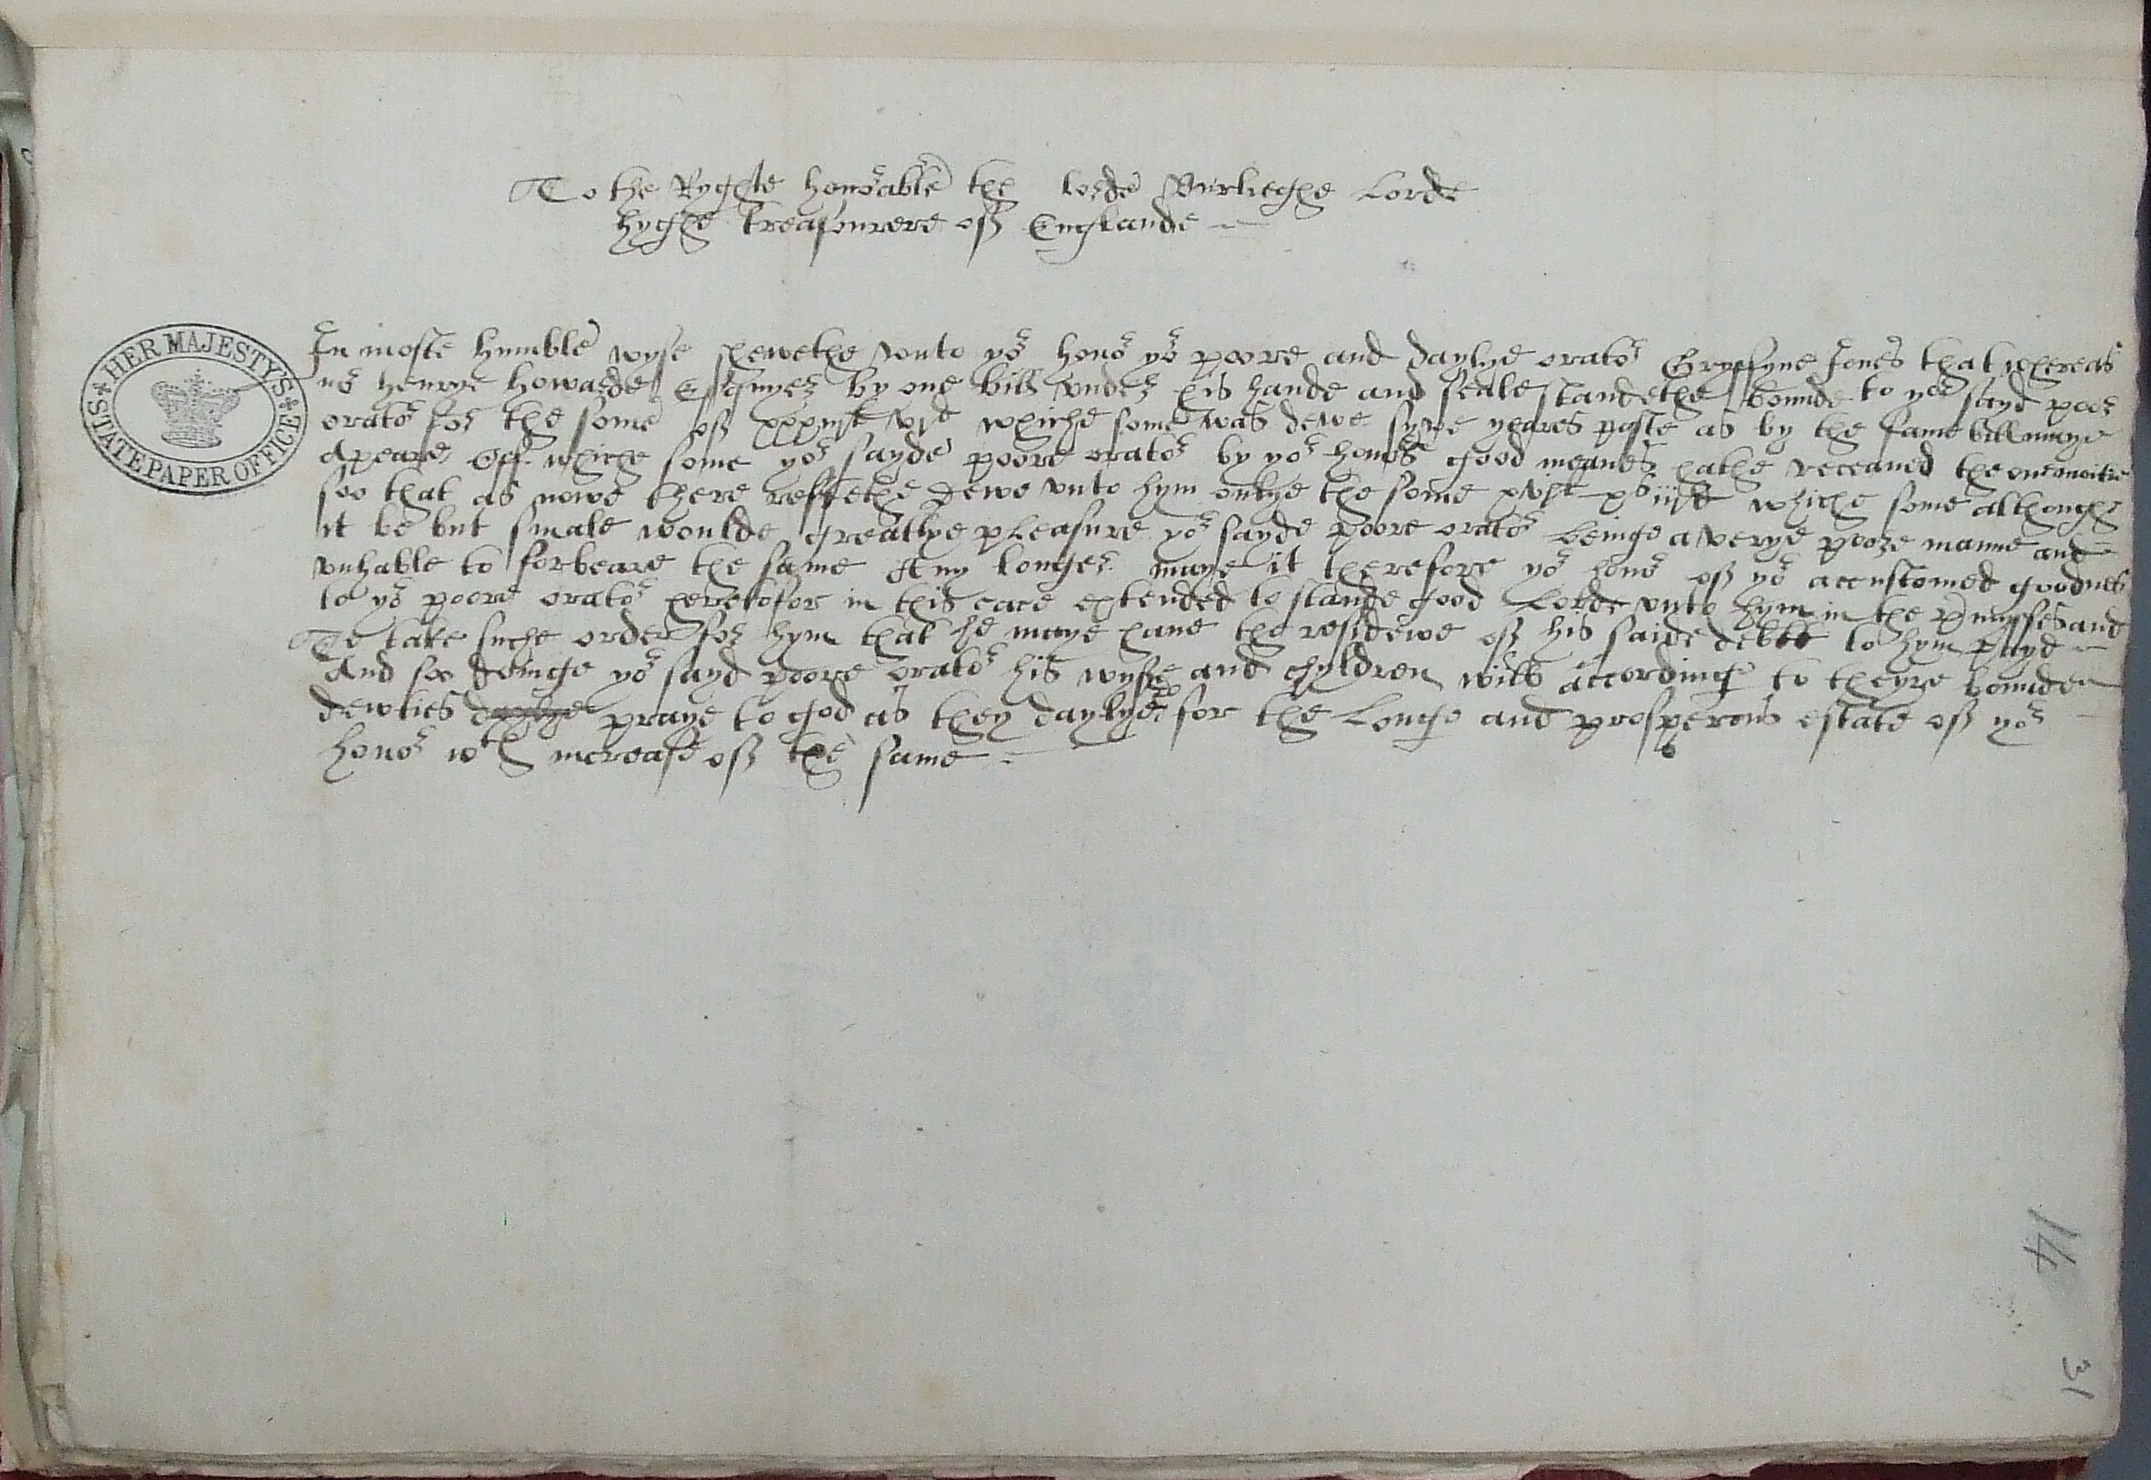 To the Ryghte honorable the lorde Burlieghe Lorde
hyghe treasourere off Englande
HER MAJESTY'S STATE PAPER OFFICE
In moste humble wyse shewethe vnto yor honor yor poore and daylye orator Gryffyne Jones that whereas
one henrye howarde Esquyer by one bill vnder his hande and seale standethe bounde to yor sayd poor
orator for the some off whiche some was dewe syxe yeares paste as by the same bill maye
Apeare Off whiche some yor sayde poore orator by yor honors good meanes hathe receaued the one moitie
soo that as nowe there restethe dewe vnto hym onlye the some whiche some althoughe
it be but smale woulde greatlye pleasure yor sayde poore orator beinge a verye poore manne and
vnhable to forbeare the same Any longer maye it therefore yor honor off yor accustomed goodnes
to yor poore orator heretofor in this case extended to stande good Lorde vnto hym in the pmysses and
To take suche order for hym that he maye haue the residewe off his saide dette to hym payd
And soo doinge yor sayd poore orator his wyffe and chyldren will accordinge to theyre bounden
dewties daylye praye to god as they daylye do for the Longe and prosperous estate off yor
honor wth increase off the same
14
31